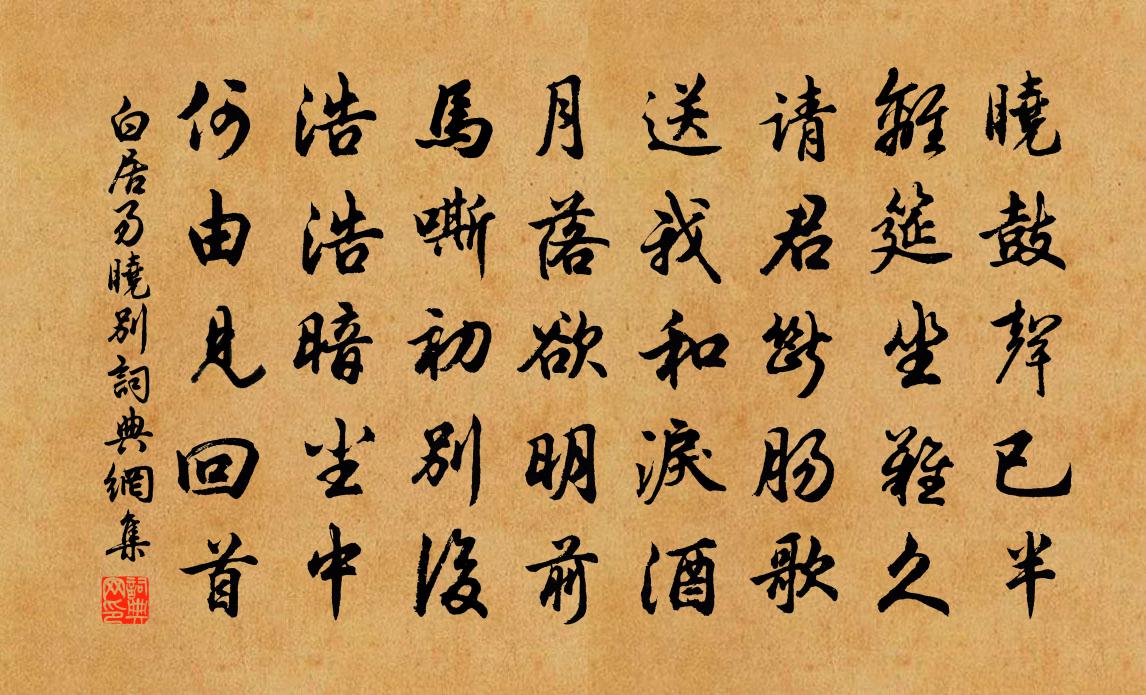 曉鼓聲已半
離筵坐難久
请君斷肠歌
送我和淚酒
月落欲明前
馬嘶初别後
浩浩暗尘中
何由見回首
白居易曉别詞典網集
詞典网印